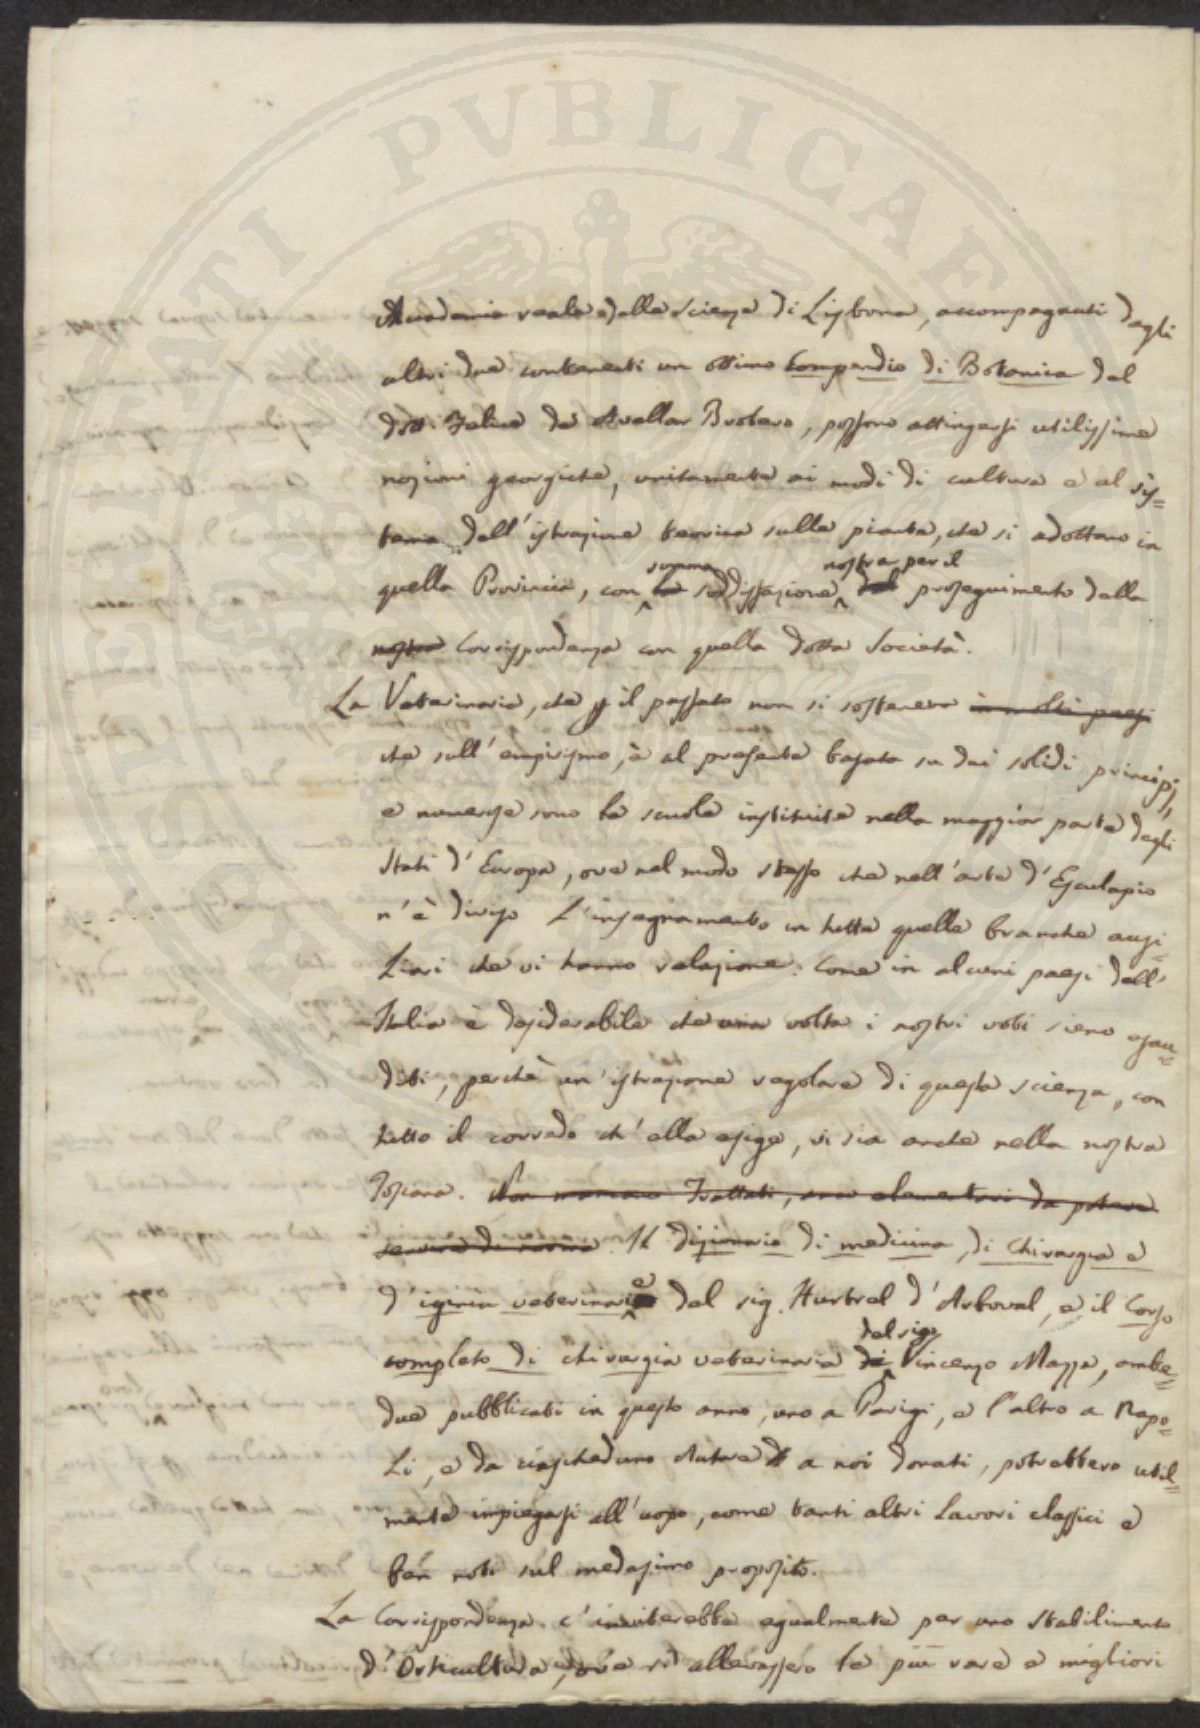 Accademia reale delle Scienze di Lisbona, accompagnati dagli
altri due contenenti un ottimo Compendio di Botanica del
dott. Felice de Avellar Brotero, possono attingersi utilissime
nozioni georgiche, unitamente ai modi di cultura e al sis=
tema dell'istruzione teorica sulle piante, che si adottano in
quelle Provincie, con la somma soddisfazione nostra per il del proseguimento della
nostra Corrispondenza con quella dotta Società.
La Veterinaria, che p il passato non si sosteneva in molti paesi
che sull'empirismo, è al presente basata su dei solidi principj,
e numerose sono le scuole instituite nella maggior parte degli
Stati d'Europa, ove nel modo stesso che nell'arte d'Esculapio
n'è diviso l'insegnamento in tutte quelle branche ausi=
liari che vi hanno relazione. Come in alcuni paesi dell'
Italia è desiderabile che una volta i nostri voti sieno esau=
diti, perchè un'istruzione regolare di questa scienza, con
tutto il corredo ch'ella esige, vi sia anche nella nostra
Toscana. Non mancano Trattati, elementari da potere
servire di norma. Il dizionario di medicina, di chirurgia e
d'igiene veterinarie del sig. Hurtrel d'Arboval, e il Corso
completo di chirurgia veterinaria di del sig. Vincenzo Mazza, ambe=
due pubblicati in questo anno, uno a Parigi, e l'altro a Napo=
li, e da ciascheduno Autore a noi donati, potrebbero util=
mente impiegarsi all'uopo, come tanti altri lavori classici e
ben noti sul medesimo proposito.
La Corrispondenza c'inviterebbe egualmente per uno stabilimento
d'Orticultura, ove si allevassero le più rare e migliori
PVBLICAE